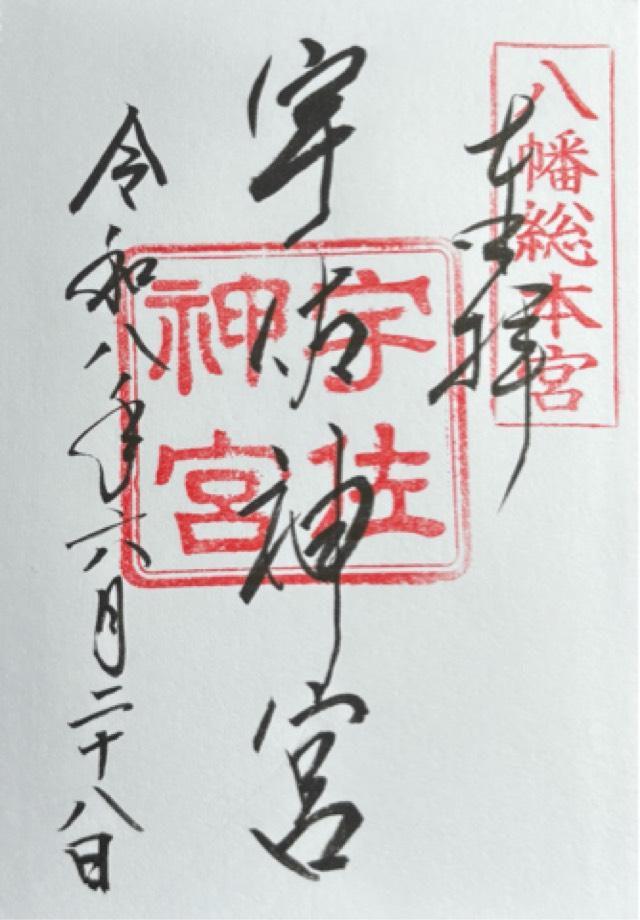 八幡総本宮
奉拝
宇佐神宮
宇佐
神宮
令和八年六月二十八日